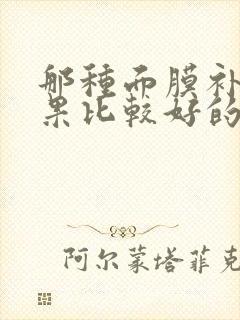 那種面膜补
果比较好的
阿尔蒙塔菲克